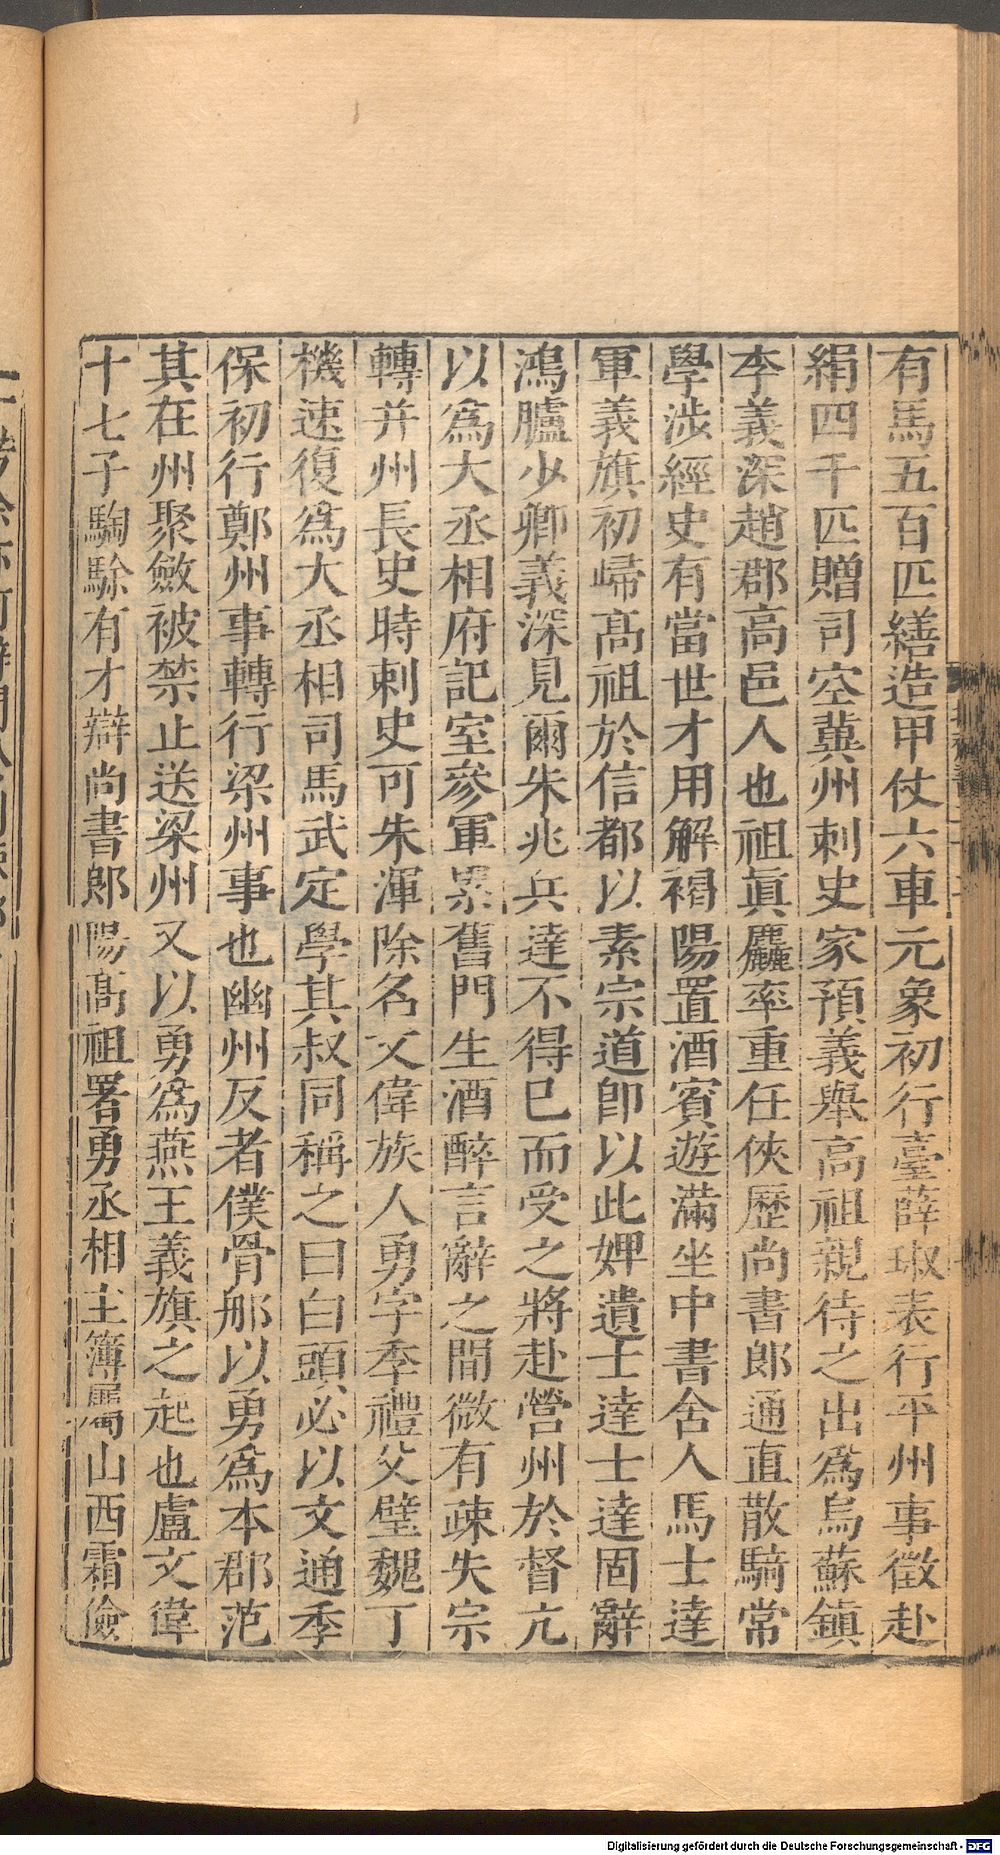 有馬五百匹繕造甲仗六車元象初行臺薛琡表行平州事徵赴
絹四千匹贈司空冀州刺史家預義舉高祖親待之出爲烏蘇鎮
李義深趙郡高邑人也祖眞麤率重任俠歷尚書郎通直散騎常
學涉經史有當世才用解褐陽置酒賓遊滿坐中書舍人馬士達
軍義旗初歸髙祖於信都以素宗道卽以此婢遺士達士達固辭
鴻臚少卿義深見爾朱兆兵達不得已而受之將赴營州於督亢
以爲大丞相府記室參軍累舊門生酒醉言辭之間微有疎失宗
轉并州長史時刺史可朱渾除名文偉族人勇字季禮父璧魏丁
機速復爲大丞相司馬武定學其叔同稱之曰白頭必以文通季
保初行鄭州事轉行梁州事也幽州反者僕骨那以勇爲本郡范
其在州聚斂被禁止送梁州又以勇爲燕王義旗之起也盧文偉
十七子騊駼有才辯尚書郎陽髙祖署勇丞相主簿屬山西霜儉
Digitalisierung gefördert durch die Deutsche Forschungsgemeinschaft - DFG